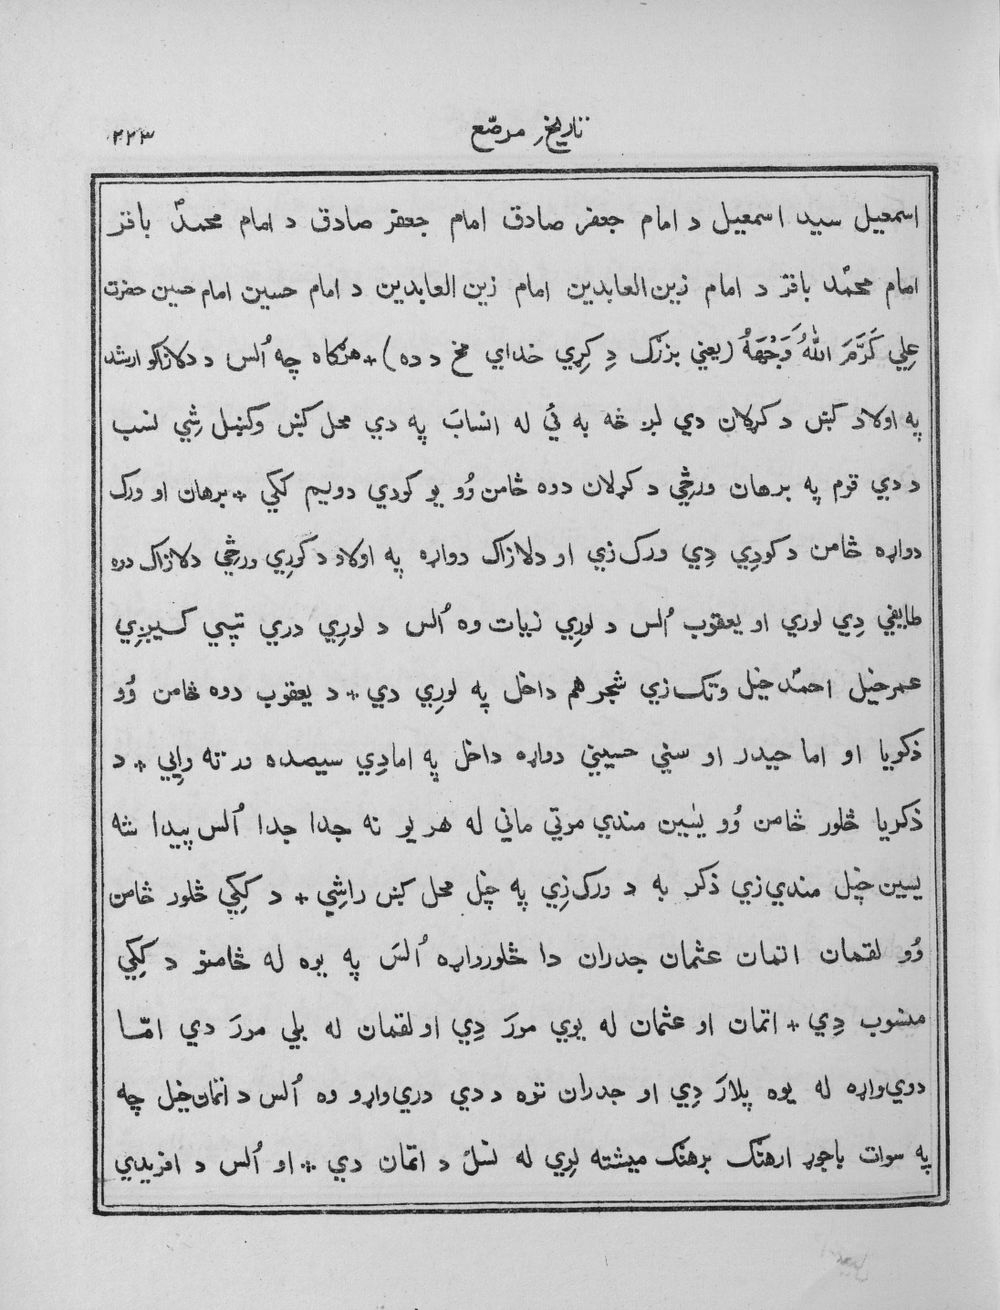 تاریخِ مرصّع ۲۲۳
اسمعیل سید اسمعیل د امام جعفر صادق امام جعفر صادق د امام محمدّ باقر
امام محمّد باقر د امام زین العابدین امام زین العابدین د امام حسین امام حسین حضرت
عِلِي كَرَّمَ اللهُ وَجْهَهُ (یعني بزرګ دِ کِړي خدای مخ د ده) + هرګاه چه اُلس د دلازاکو ارشد
په اولاد کښ د کړلان دي لږ څه به ئي له انسابَ په دي محل کښ وکښل شِي نسب
د دي قوم په برهان ورځِي د کړلان دوه ځامن وُو یو کودي دویم ککي + برهان او ورک
دواړه ځامن د کودِي دِي ورک زي او دلازاک دواړه په اولاد د کودِي ورځِي دلازاک دوه
طایفي دِي لوري او یعقوب اُلس د لورِي زیات وه اُلس د لورِي دري تپي کسیږي
عمرخیل احمدّ خیل وتک زي شجر هم داخل په لورِي دي + د یعقوب دوه ځامن وُو
ذکریا او اما حیدر او سني حسیني دواړه داخل په امادِي سیصده ور ته رایي + د
ذکریا څلور ځامن وُو یٰسین مندي مرتي ماني له هر یو نه جدا جدا اُلس پیدا شه
یسین خیل مندي زي ذکر به د ورک زِي په خپل محل کښ راشِي + د ککِي څلور ځامن
وُو لقمان اتمان عثمان جدران دا څلورواړه اُلسَ په یوه له ځامنو د ککِي
منسوب دِي + اتمان او عثمان له یوي مورَ دِي او لقمان له بلي مورَ دي امّا
دوي واړه له یوه پلارَ دِي او جدران تره د دي دري واړو وه اُلس د اتمان خیل چه
په سوات باجوړ ارهنګ برهنګ میشته لِري له نسلَ د اتمان دي + او اُلس د افریدي